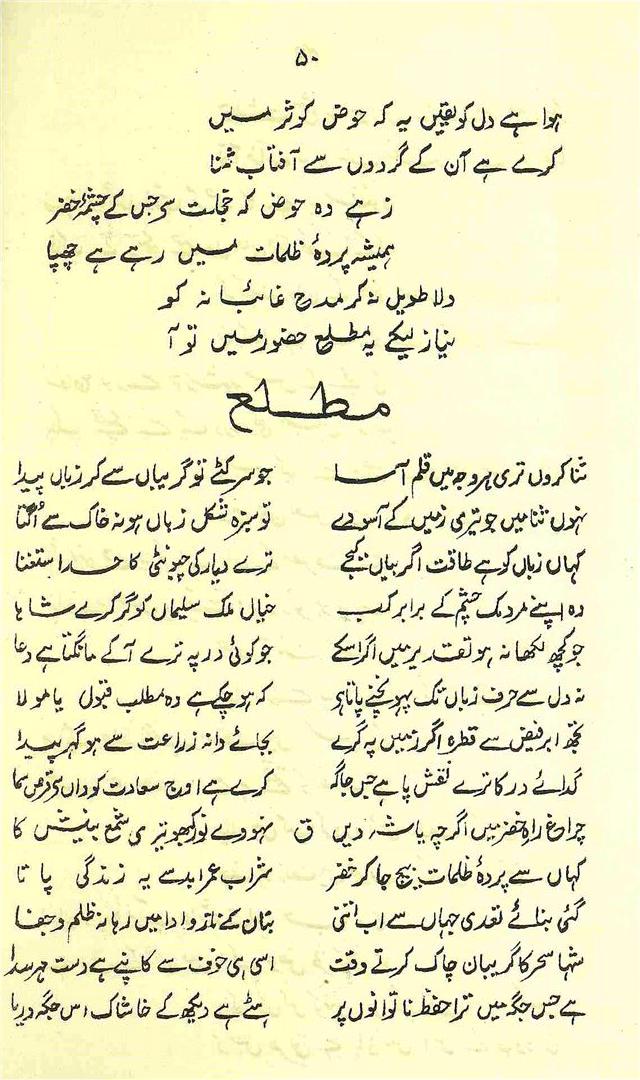 ۵۰
ہوا ہے دل کو یقیں یہ کہ حوض کوثر میں
کرے ہے آن کے گردوں سے آفتاب شنا
زہے وہ حوض کہ خجالت سے جس کے چشمۂ خضر
ہمیشہ پردۂ ظلمات میں رہے ہے چھپا
دلا طویل نہ کر مدح غائبانہ کو
نیاز لیکے یہ مطلع حضور میں تو آ
مطلع
ثنا کروں تری ہر وجہ میں قلم آسا جو سر کٹے تو گریباں سے کر زباں پیدا
ہنوں ثنا میں جو تیری زمیں کے آسودے تو سبزہ شکل زباں ہو نہ خاک سے اُگتا
کہاں زباں کو ہے طاقت اگر بیاں کیجے ترے دیار کی چیونٹی کا خدا ستغنا
وہ اپنے مردمک چشم کے برابر کب خیال ملک سلیماں کو گر کرے شاہا
جو کچھ لکھا نہ ہو تقدیر میں اگر اسکے جو کوئی در پہ ترے آکے مانگتا ہے دعا
نہ دل سے حرف زباں تک پہونچنے پاتا ہو کہ ہو چکے ہے وہ مطلب قبول یا مولا
تجھ ابر فیض سے قطرہ اگر زمیں پہ گرے بجائے دانہ زراعت سے ہو گہر پیدا
گدائے در کا ترے نقش پا ہے جس جاگہ کرے ہے اوج سعادت کو واں قرص ہما
چراغ راہ خضر میں اگرچہ یا شہ دیں ق نہووے نور کبھو تیری شمع بینش کا
کہاں سے پردۂ ظلمات بیچ جا کر خضر شراب عمر ابد سے یہ زندگی پاتا
گئی بنائے تعدی جہاں سے اب اتنی بتاں کے ناز و ادا میں رہا نہ ظلم و جفا
شہا سحر کا گریبان چاک کرتے وقت اسی ہی خوف سے کانپے ہے دست مہر سدا
ہے جس جگہ میں ترا حفظ ناتوانوں پر ہٹے ہے دیکھ کے خاشاک اس جگہ دریا